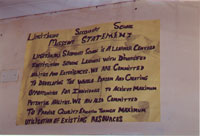 Livingstone Secondary School
Mission Statement
Livingstone Secondary School is a Learner Centred
Institution serving Learners with Diversified
Abilities and Experiences. We are Committed
to Developing the Whole Person and Creating
Opportunities for Individuals to Achieve Maximum
Potential Abilities. We are also Committed
to Provide Quality Education through Maximum
utilization of Existing Resources